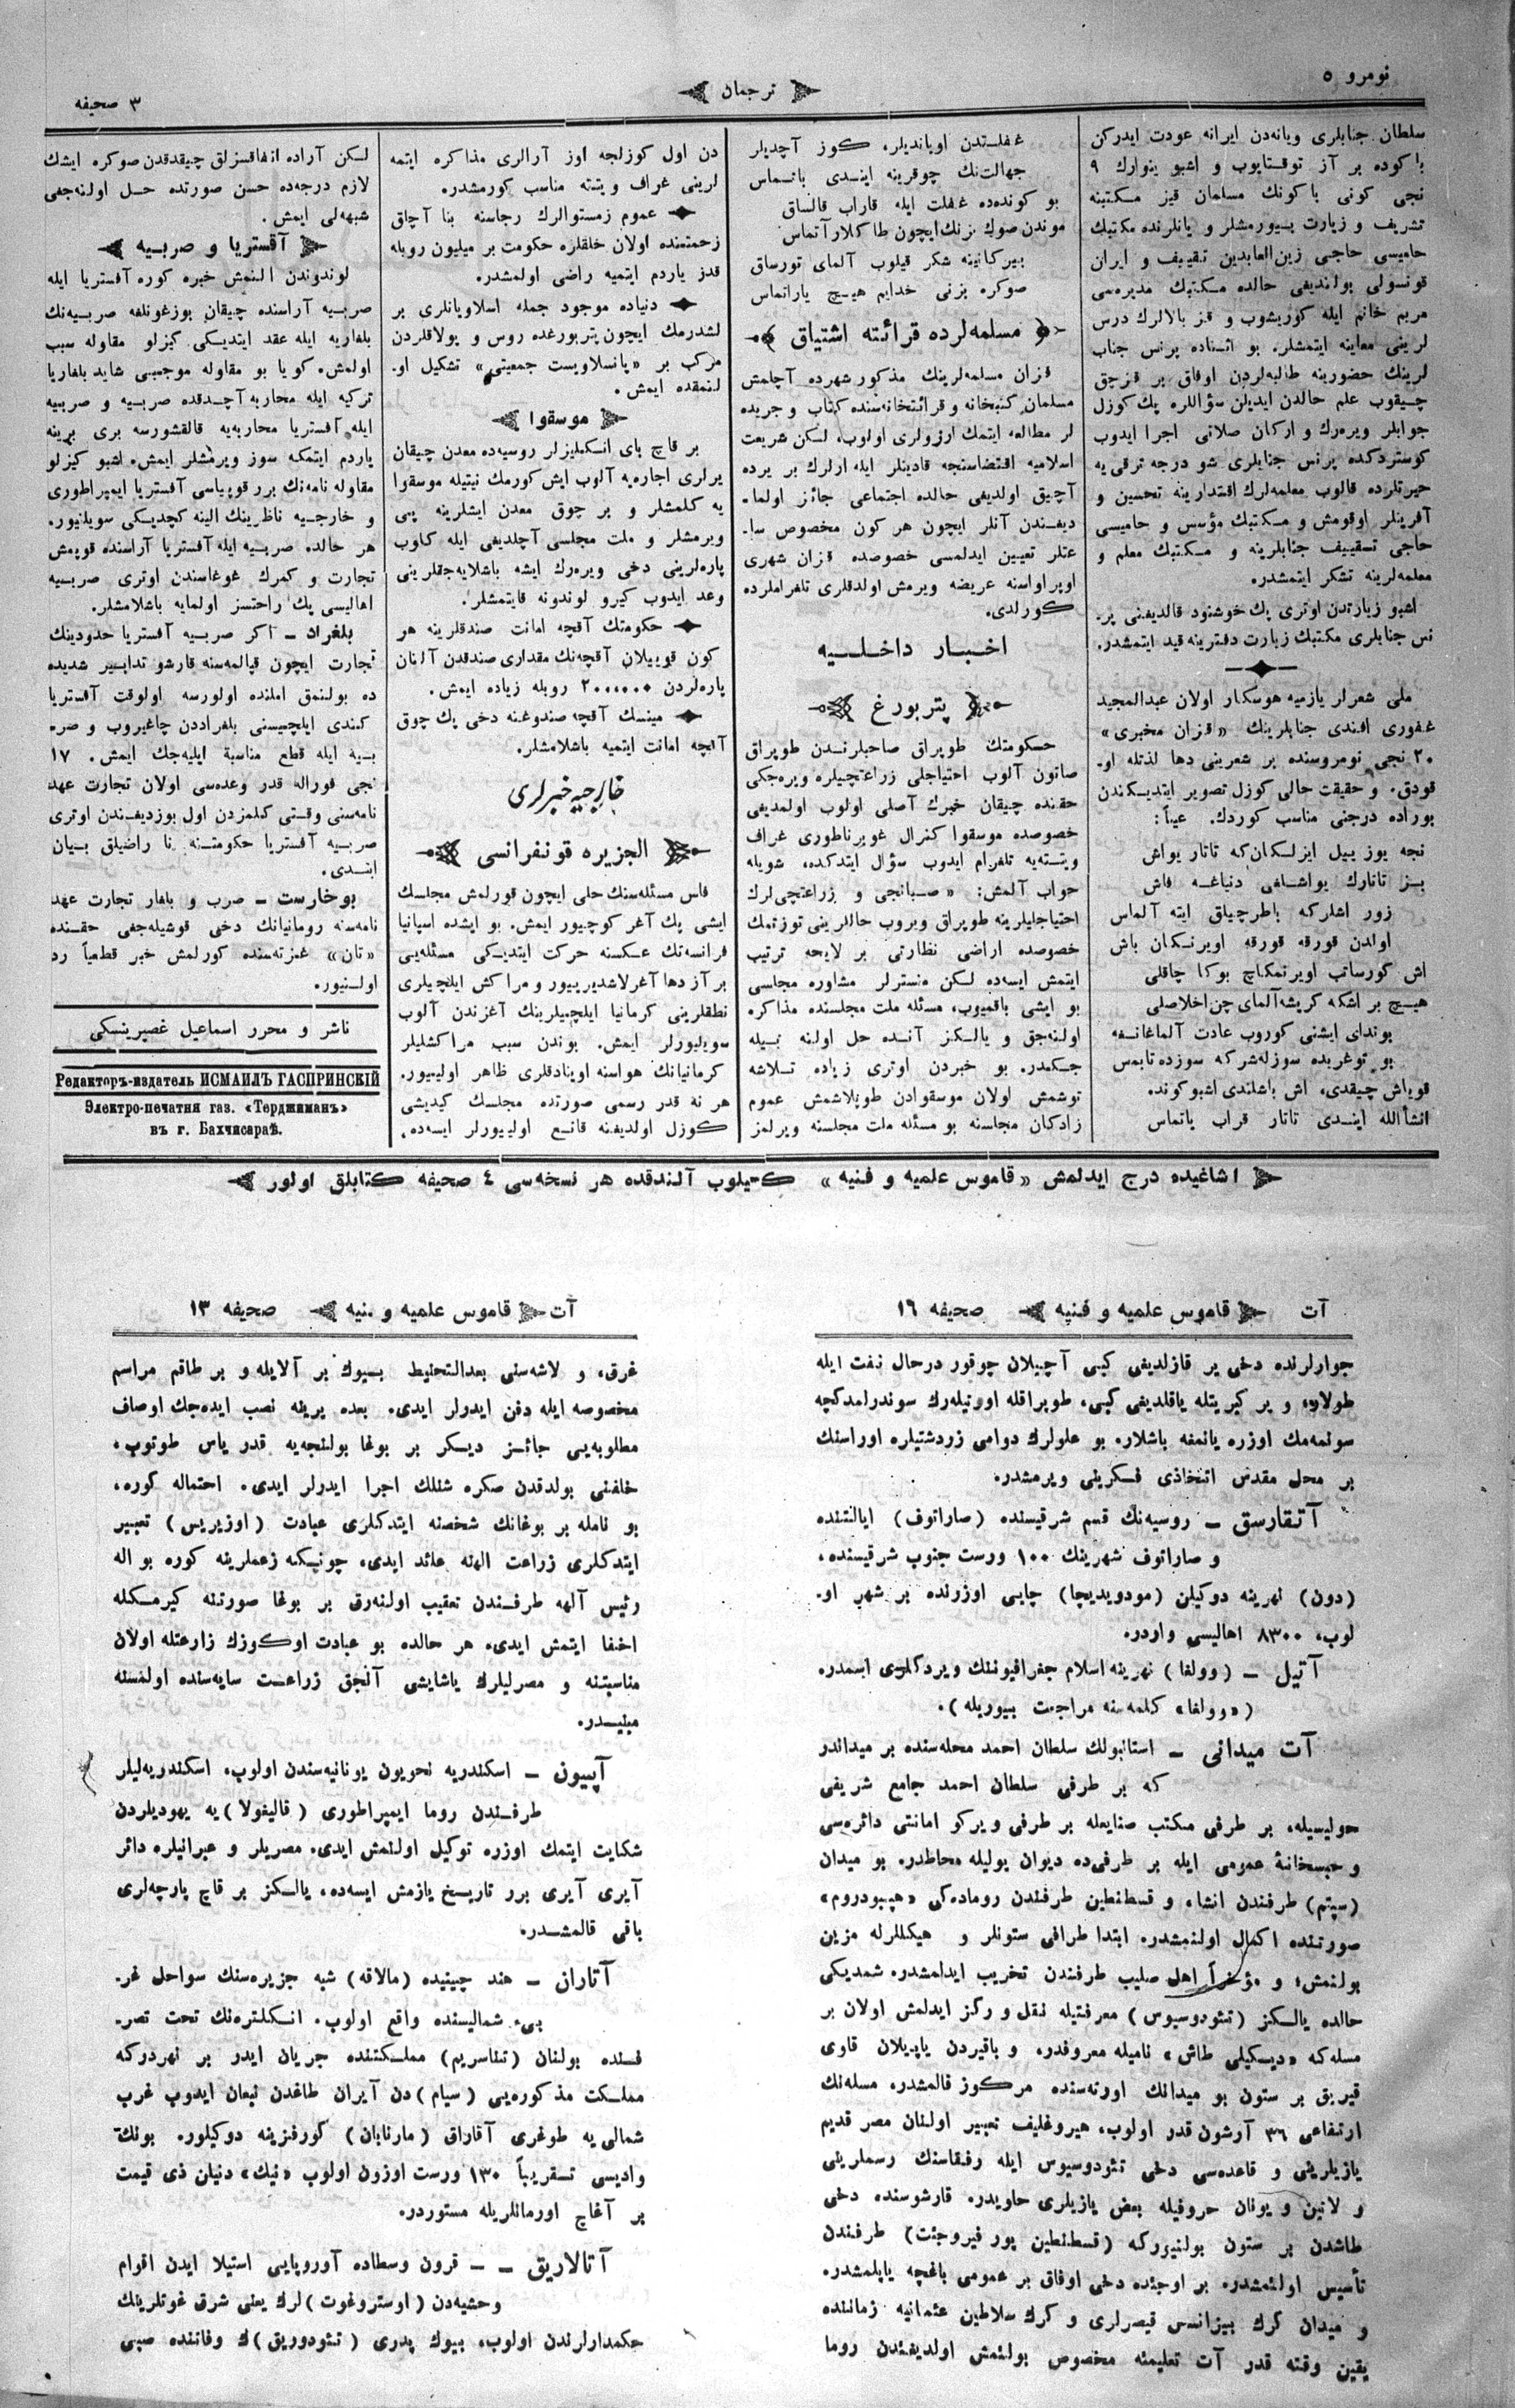 نومرو ٥
ترجمان
٣ صحیفه
سلطان جنابلری ویانه‌دن ایرانه عودت ایدرکن
باکوده بر آز توقتایوب و اشبو ینوارك ٩
نجی کونی باکونك مسلمان قیز مکتبنه
تشریف و زیارت بیورمشلر و یانلرنده مکتبك
حامیسی حاجی زین‌العابدین تقییف و ایران
قونسولی بولندیغی حالده مکتبك مدیره‌سی
مریم خانم ایله کوریشوب و قز بالالرك درس
لرینی معاینه ایتمشلر. بو اثناده پرنس جناب
لرینك حضورینه طالبه‌لردن اوفاق بر قزچق
چیقوب علم حالدن ایدیلن سؤاللره پك کوزل
جوابلر ویره‌رك و ارکان صلاتی اجرا ایدوب
کوستردکده پرنس جنابلری شو درجه ترقی یه
حیرتلرده قالوب معلمه‌لرك اقتدارینه تحسین و
آفرینلر اوقومش و مکتبك مؤسس و حامیسی
حاجی تقییف جنابلرینه و مکتبك معلم و
معلمه‌لرینه تشکر ایتمشدر.
اشبو زیارتدن اوتری پك خوشنود قالدیغنی پر-
نس جنابلری مکتبك زیارت دفترینه قید ایتمشدر.
ملی شعرلر یازمیه هوسکار اولان عبدالمجید
غفوری افندی جنابلرینك «قزان مخبری»
٢٠ نجی نومروسنده بر شعرینی دها لذتله او-
قودق. و حقیقت حالی کوزل تصویر ایتدیکندن
بوراده درجنی مناسب کوردك. عیناً:
نجه یوز ییل ایزلکان‌که تاتار یواش
بز تاتارك یواشلغی دنیاغه فاش
زور اشلرکه باطرچیلق ایته آلماس
اولدن قورقه قورقه اویرنکان باش
اش کورساتب اویرتمکاچ بوکا چاقلی
هیچ بر اشکه کریشه‌آلمای چن‌اخلاصلی
بوندای ایشنی کوروب عادت آلماغانغه
بو توغریده سوزله‌شرکه سوزده تابمس
قویاش چیقدی، اش باشلندی اشبو کونده
انشأالله ایندی تاتار قراب یاتماس
غفلتدن اویاندیلر، کوز آچدیلر
جهالت‌نك چوقرینه ایندی باتماس
بو کونده‌ده غفلت ایله قاراب قالساق
موندن صوك بزنك‌ایچون طاكلارآتماس
بیرکانینه شکر قیلوب آلمای تورساق
صوکره بزنی خدایم هیچ یاراتماس
مسلمه‌لرده قرائته اشتیاق
قزان مسلمه‌لرینك مذکور شهرده آچلمش
مسلمان کتبخانه و قرائتخانه‌سنده کتاب و جریده
لر مطالعه ایتمك ارزولری اولوب، لکن شریعت
اسلامیه اقتضاسنجه قادینلر ایله ارلرك بر یرده
آچیق اولدیغی حالده اجتماعی جائز اولما-
دیغندن آنلر ایچون هر کون مخصوص سا-
عتلر تعیین ایدلمسی خصوصده قزان شهری
اوپراواسنه عریضه ویرمش اولدقلری تلغراملرده
کورلدی.
اخبار داخلیه
پتربورغ
حکومتك طوپراق صاحبلرندن طوپراق
صاتون آلوب احتیاجلی زراعتچیلره ویره‌جکی
حقنده چیقان خبرك آصلی اولوب اولمدیغی
خصوصده موسقوا کنرال غوبرناطوری غراف
ویتته‌یه تلغرام ایدوب سؤال ایتدکده، شویله
جواب آلمش: «صبانجی و زراعتچی‌لرك
احتیاجلیلرینه طوپراق ویروب حاللرینی توزتمك
خصوصده اراضی نظارتی بر لایحه ترتیب
ایتمش ایسه‌ده لکن منسترلر مشاوره مجلسی
بو ایشی باقمیوب، مسئله ملت مجلسنده مذاکره
اولنه‌جق و یالکز آنده حل اولنه بیله
جکدر. بو خبردن اوتری زیاده تلاشه
توشمش اولان موسقوادن طوپلاشمش عموم
زادکان مجلسنه بو مسئله ملت مجلسنه ویرلمز
دن اول کوزلجه اوز آرالری مذاکره ایتمه
لرینی غراف ویتته مناسب کورمشدر.
عموم زمستوالرك رجاسنه بنا آچلق
زحمتنده اولان خلقلره حکومت بر میلیون روبله
قدز یاردم ایتمیه راضی اولمشدر.
دنیاده موجود جمله اسلاویانلری بر
لشدرمك ایچون پتربورغده روس و پولاقلردن
مرکب بر «پانسلاویست جمعیتی» تشکیل او-
لنمقده ایمش.
موسقوا
بر قاچ بای انکلیزلر روسیه‌ده معدن چیقان
یرلری اجاره‌یه آلوب ایش کورمك نیتیله موسقوا
یه کلمشلر و بر چوق معدن ایشلرینه پی
ویرمشلر و ملت مجلسی آچلدیغی ایله کلوب
پاره‌لرینی دخی ویره‌رك ایشه باشلایه‌جقلرینی
وعد ایدوب کیرو لوندونه قایتمشلر.
حکومتك آقچه امانت صندقلرینه هر
کون قوییلان آقچه‌نك مقداری صندقدن آلنان
پاره‌لردن ٢٠٠،٠٠٠ روبله زیاده ایمش.
مینسك آقچه صندوغنه دخی پك چوق
آقچه امانت ایتمیه باشلامشلر.
خارجیه خبرلری
الجزیره قونفرانسی
فاس مسئله‌سنك حلی ایچون قورلمش مجلسك
ایشی پك آغر کوچیور ایمش. بو ایشده اسپانیا
فرانسه‌نك عکسنه حرکت ایتدیکی مسئله‌یی
بر آز دها آغرلاشدیریبور و مراکش ایلچیلری
نطقلرینی کرمانیا ایلچیلرینك آغزندن آلوب
سویلیورلر ایمش. بوندن سبب مراکشلیلر
کرمانیانك هواسنه اوینادقلری ظاهر اولییور.
هر نه قدر رسمی صورتده مجلسك کیدیشی
کوزل اولدیغنه قانع اولییورلر ایسه‌ده،
لکن آراده اتفاقسزلق چیقدقدن صوکره ایشك
لازم درجه‌ده حسن صورتده حل اولنه‌جغی
شبهه‌لی ایمش.
آفستریا و صربیه
لوندوندن النمش خبره کوره آفستریا ایله
صربیه آراسنده چیقان بوزغونلغه صربیه‌نك
بلغاریه ایله عقد ایتدیکی کیزلو مقاوله سبب
اولمش. کویا بو مقاوله موجبنجی شاید بلغاریا
ترکیه ایله محاربه آچدقده صربیه و صربیه
ایله آفستریا محاربه‌یه قالقشورسه بری برینه
یاردم ایتمکه سوز ویرمشلر ایمش. اشبو کیزلو
مقاوله نامه‌نك برر قوپیاسی آفستریا ایمپراطوری
و خارجیه ناظرینك الینه کچدیکی سویلنیور.
هر حالده صربیه ایله آفستریا آراسنده قوپمش
تجارت و کمرك غوغاسندن اوتری صربیه
اهالیسی پك راحتسز اولمایه باشلامشلر.
بلغراد – اکر صربیه آفستریا حدودینك
تجارت ایچون قپالمه‌سنه قارشو تدابیر شدیده
ده بولنمق املنده اولورسه اولوقت آفستریا
کندی ایلچیسنی بلغراددن چاغیروب و صر-
بیه ایله قطع مناسبة ایلیه‌جك ایمش. ١٧
نجی فوراله قدر وعده‌سی اولان تجارت عهد
نامه‌سنی وقتی کلمزدن اول بوزدیغندن اوتری
صربیه آفستریا حکومتنه نا راضیلق بیان
ایتدی.
بوخارست – صرب و بلغار تجارت عهد
نامه‌سنه رومانیانك دخی قوشیله‌جغی حقنده
«تان» غزته‌سنده کورلمش خبر قطعیاً رد
اولنیور.
ناشر و محرر اسماعیل غصپرینسکی
Редакторъ-издатель ИСМАИЛЪ ГАСПРИНСКІЙ
Электро-печатня газ. «Терджиманъ»
въ г. Бахчисараѣ.
اشاغیده درج ایدلمش «قاموس علمیه و فنیه» کسیلوب آلندقده هر نسخه‌سی ٤ صحیفه کتابلق اولور
آت قاموس علمیه و فنیه صحیفه ١٦
جوارلرنده دخی یر قازلدیغی کبی آچیلان چوقور درحال نفت ایله
طولار، و بر کبریتله یاقلدیغی کبی، طوپراقله اورتیله‌رك سوندرلمدکچه
سونمه‌مك اوزره یانمغه باشلار. بو علولرك دوامی زردشتیلره اوراسنك
بر محل مقدس اتخاذی فکرینی ویرمشدر.
آتقارسق – روسیه‌نك قسم شرقیسنده (صاراتوف) ایالتنده
و صاراتوف شهرینك ١٠٠ ورست جنوب شرقیسنده،
(دون) نهرینه دوکیلن (مودویدیچا) چایی اوزرنده بر شهر او-
لوب، ٨٣٠٠ اهالیسی واردر.
آتیل – (وولغا) نهرینه اسلام جغرافیوننك ویردکلری اسمدر.
(«وولغا» کلمه‌سنه مراجعت بیوریله).
آت میدانی – استانبولك سلطان احمد محله‌سنده بر میداندر
که بر طرفی سلطان احمد جامع شریفی
حولیسیله، بر طرفی مکتب صنایعله بر طرفی ویرکو امانتی دائره‌سی
و حبسخانۀ عمومی ایله بر طرفی‌ده دیوان یولیله محاطدر. بو میدان
(سپتم) طرفندن انشاء و قسطنطین طرفندن روماده‌کی «هیپودروم»
صورتنده اکمال اولنمشدر. ابتدا طرافی ستونلر و هیکللرله مزین
بولنمش؛ و مؤخراً اهل صلیب طرفندن تخریب ایدلمشدر. شمدیکی
حالده یالکز (تئودوسیوس) معرفتیله نقل و رکز ایدلمش اولان بر
مسله‌که «دیکیلی طاش» نامیله معروفدر، و باقیردن یاپیلان قاوی
قیریق بر ستون بو میدانك اورته‌سنده مرکوز قالمشدر. مسله‌نك
ارتفاعی ٣٦ آرشون قدر اولوب، هیروغلیف تعبیر اولنان مصر قدیم
یازیلرینی و قاعده‌سی دخی تئودوسیوس ایله رفقاسنك رسملرینی
و لاتین و یونان حروفیله بعض یازیلری حاویدر. قارشوسنده دخی
طاشدن بر ستون بولنیورکه (قسطنطین پور فیروجنت) طرفندن
تأسیس اولنمشدر. بر اوجنده دخی اوفاق بر عمومی باغچه یاپلمشدر.
و میدان کرك بیزانس قیصرلری و کرك سلاطین عثمانیه زماننده
یقین وقته قدر آت تعلیمنه مخصوص بولنمش اولدیغندن روما
آت قاموس علمیه و فنیه صحیفه ١٣
غرق، و لاشه‌سنی بعدالتحنیط بیوك بر آلایله و بر طاقم مراسم
مخصوصه ایله دفن ایدرلر ایدی. بعده یرینه نصب ایده‌جك اوصاف
مطلوبه‌یی جائز دیکر بر بوغا بولنجه‌یه قدر یاس طوتوب،
خلفنی بولدقدن صکره شنلك اجرا ایدرلر ایدی. احتماله کوره،
بو نامله بر بوغانك شخصنه ایتدکلری عبادت (اوزیریس) تعبیر
ایتدکلری زراعت الهنه عائد ایدی، چونکه زعملرینه کوره بو اله
رئیس آلهه طرفندن تعقیب اولنه‌رق بر بوغا صورتنه کیرمکله
اختفا ایتمش ایدی. هر حالده بو عبادت اوکوزك زارعتله اولان
مناسبتنه و مصرلیلرك یاشایشی آنجق زراعت سایه‌سنده اولمسنه
مبنیدر.
آپیون – اسکندریه نحویون یونانیه‌سندن اولوب، اسکندریه‌لیلر
طرفندن روما ایمپراطوری (قالیغولا)یه یهودیلردن
شکایت ایتمك اوزره توکیل اولنمش ایدی. مصریلر و عبرانیلره دائر
آیری آیری برر تاریخ یازمش ایسه‌ده، یالکز بر قاچ پارچه‌لری
باقی قالمشدر.
آتاران – هند چینیده (مالاقه) شبه جزیره‌سنك سواحل غر-
بیء شمالیسنده واقع اولوب، انکلتره‌نك تحت تصر-
فنده بولنان (تناسریم) مملکتنده جریان ایدر بر نهردرکه
مملکت مذکوره‌یی (سیام)دن آیران طاغدن نبعان ایدوب غرب
شمالی یه طوغری آقاراق (مارتابان) کورفزینه دوکیلور. بونك
وادیسی تقریباً ١٣٠ ورست اوزون اولوب «تیك» دنیان ذی قیمت
بر آغاج اورمانلریله مستوردر.
آتالاریق – – قرون وسطاده آوروپایی استیلا ایدن اقوام
وحشیه‌دن (اوستروغوت)لرك یعنی شرق غوتلرینك
حکمدارلرندن اولوب، بیوك پدری (تئودوریق)ك وفاتنده صبی